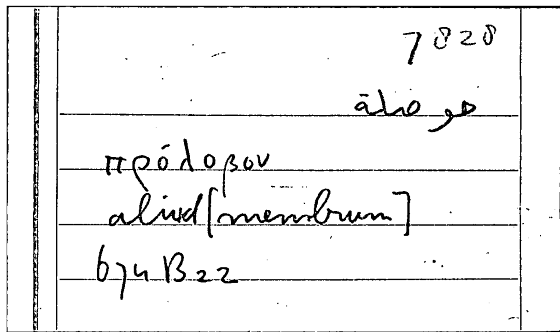 7828
حوصلة
πρόλοβον
aliud [membrum]
674 B22